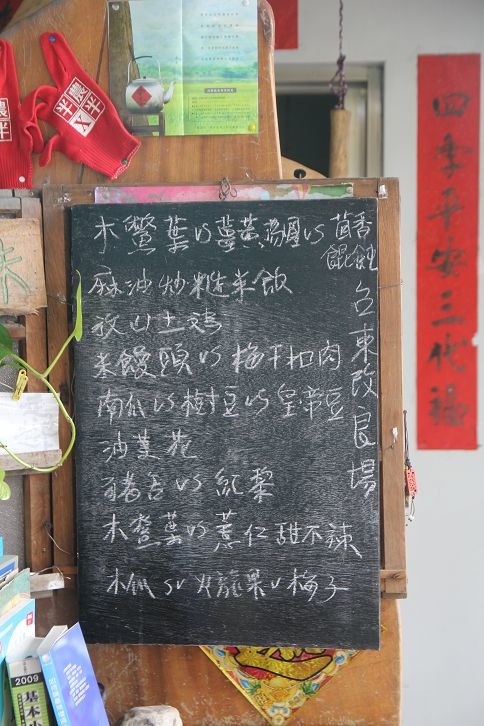 半農
半X
木鱉葉VS薑黃湯圓VS茴香餛飩
麻油炒糙米飯
放山土鸡
米饅頭VS梅干扣肉
南瓜VS樹豆VS皇帝豆
油菜花
豬舌VS紅藜
木鱉葉VS薏仁甜不辣
木瓜SV火龍果V梅子
台東改良場
四季平安三代福
2009
基本小